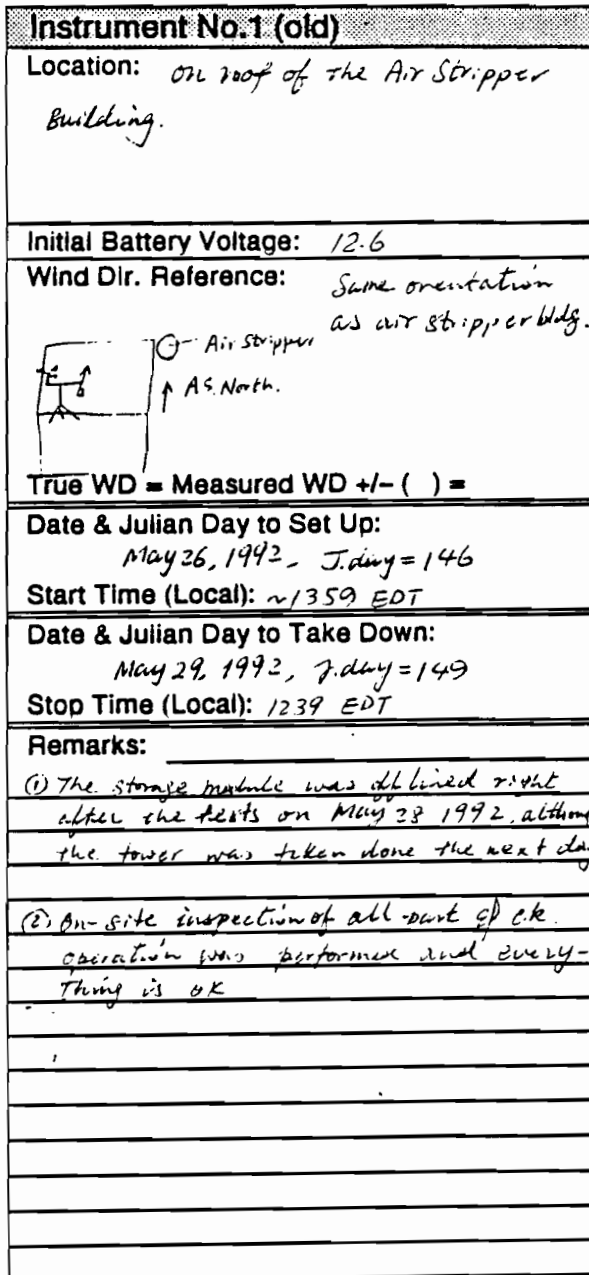 Instrument No.1 (old)
Location: on roof of the Air Stripper
Building.
Initial Battery Voltage: 12.6
Wind Dir. Reference: Same orentation
as air stripper bldg.
Air Stripper
A.S. North.
True WD = Measured WD +/- ( ) =
Date & Julian Day to Set Up:
May 26, 1992, J.day = 146
Start Time (Local): ~1359 EDT
Date & Julian Day to Take Down:
May 29, 1992, J.day = 149
Stop Time (Local): 1239 EDT
Remarks:
(1) The storage module was off lined right
after the tests on May 28 1992, althoug
the tower was taken done the next da
(2) On-site inspection of all part
operation was performed and every-
thing is ok